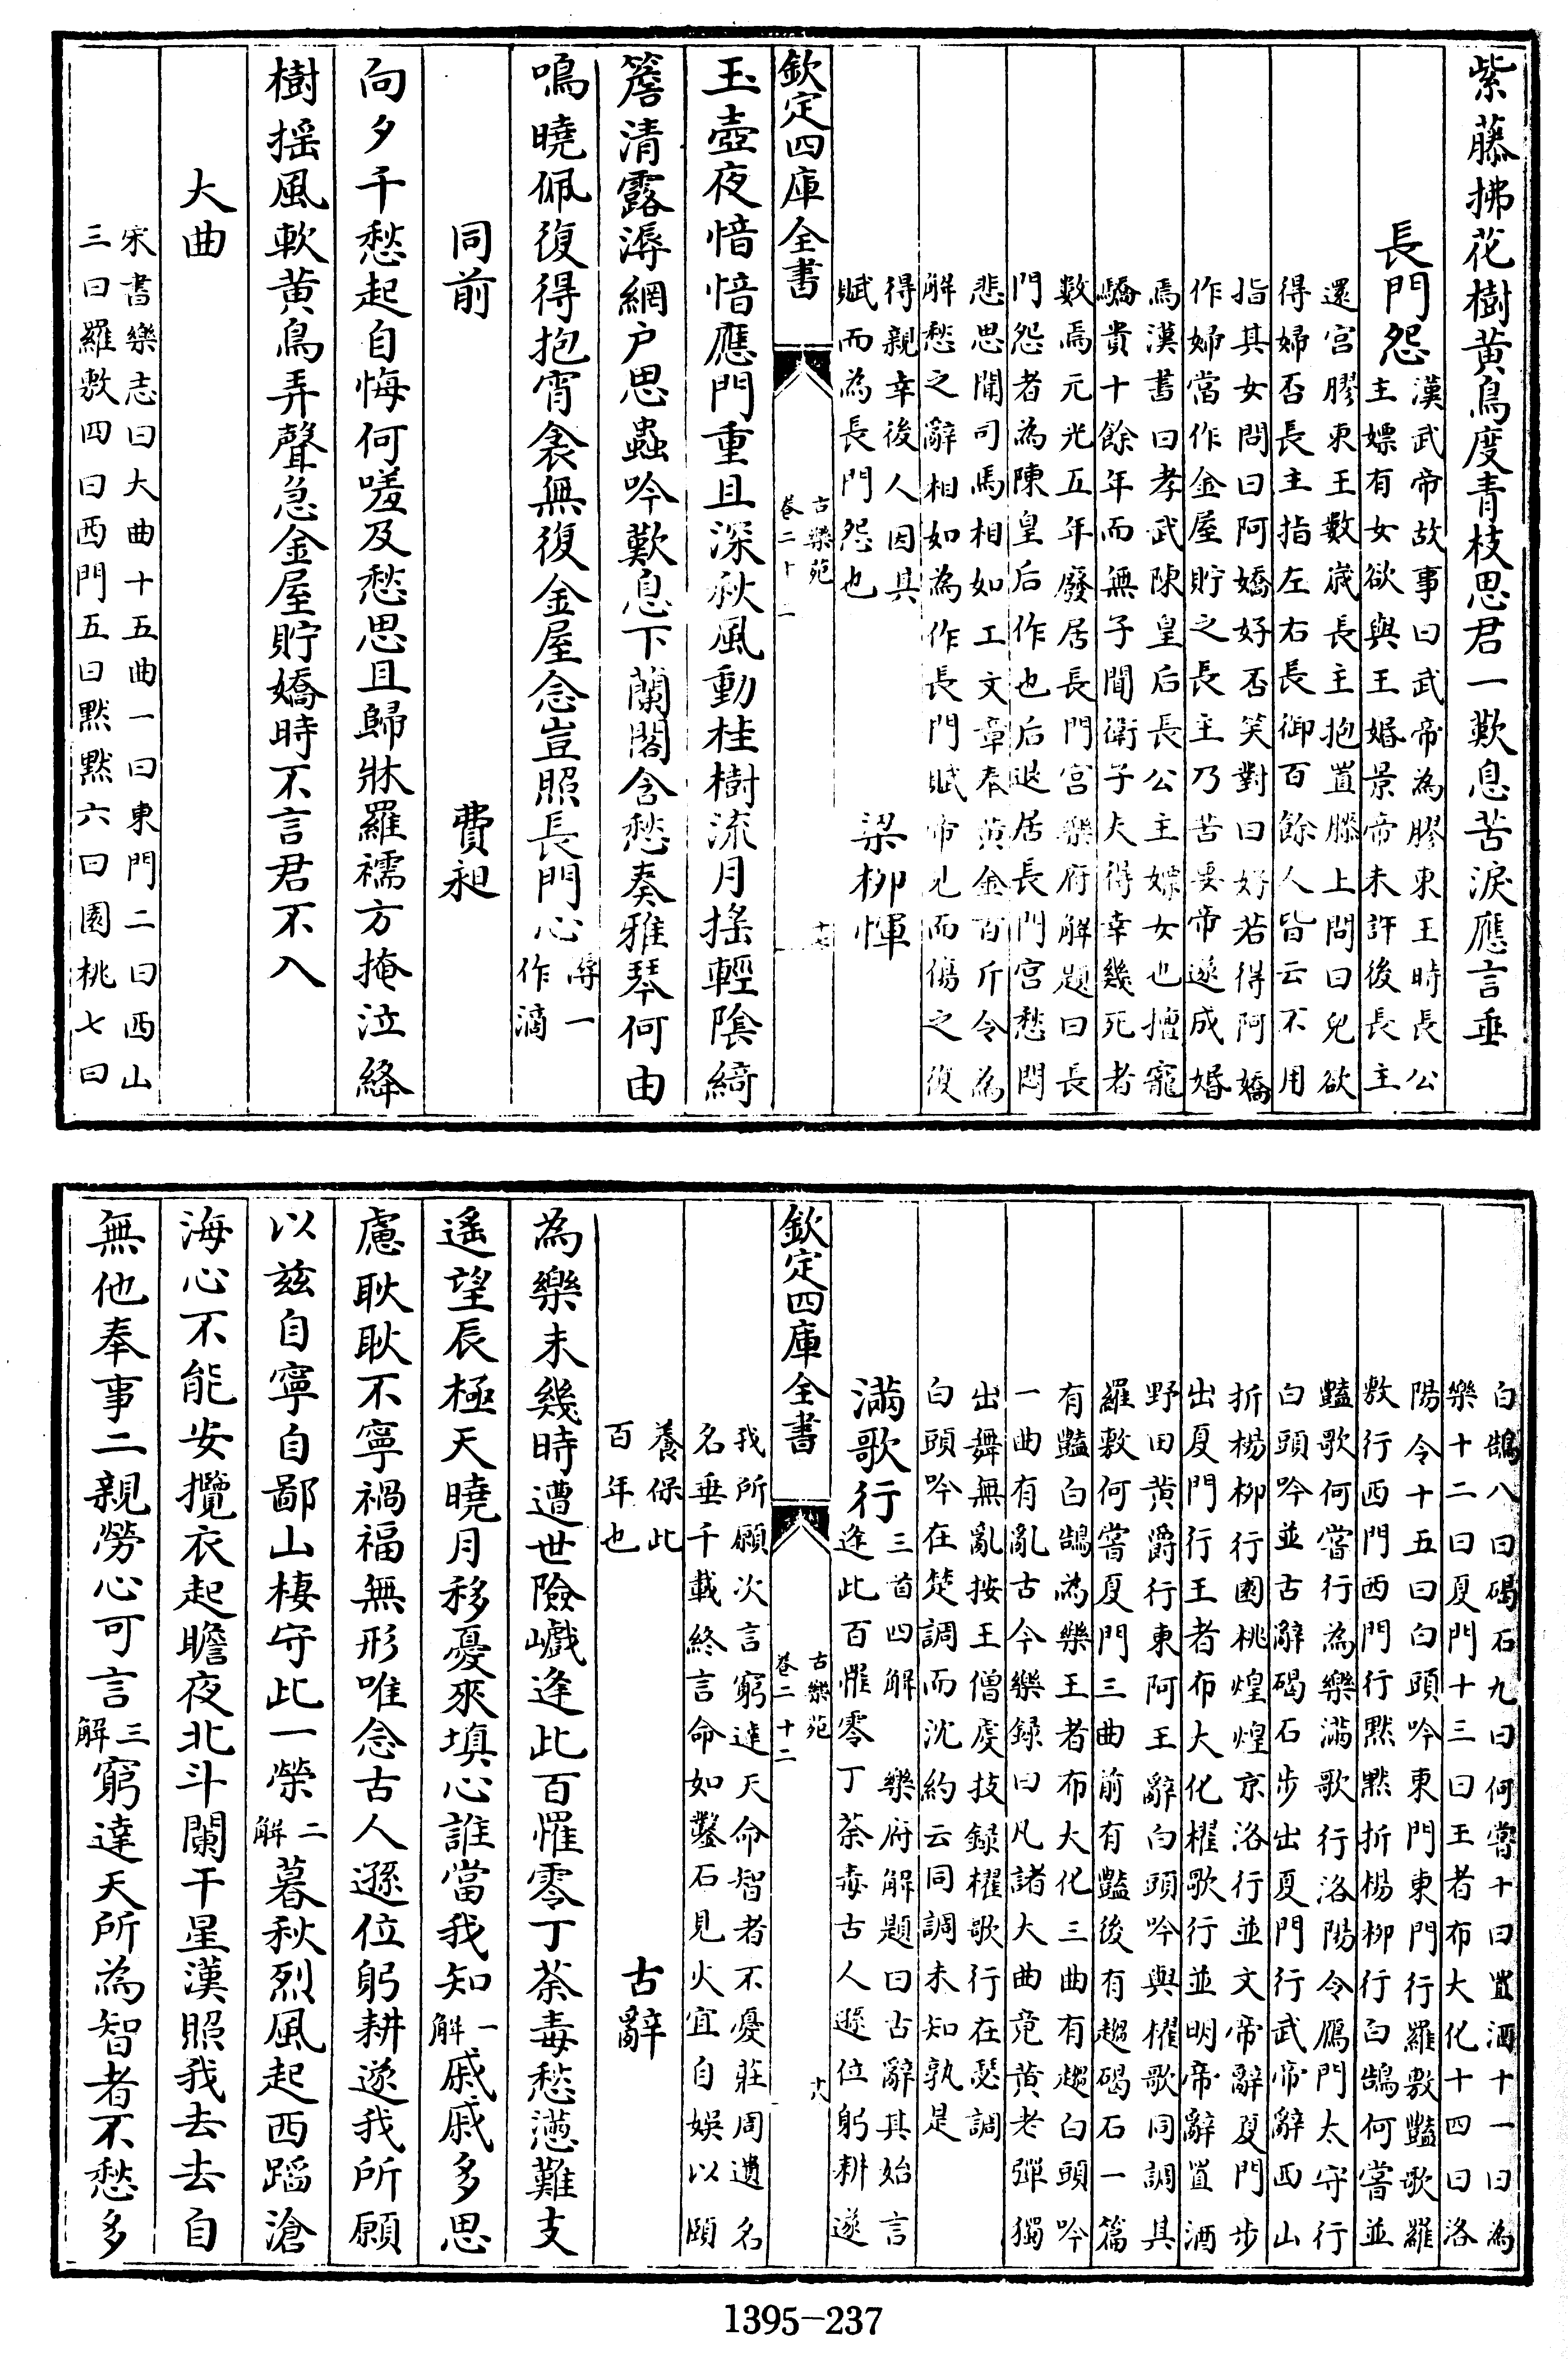 紫藤拂花樹黄鳥度青枝思君一歎息苦淚應言垂
長門怨
漢武帝故事曰武帝為膠東王時長公
主嫖有女欲與王婚景帝未許後長主
還宫膠東王數歲長主抱置膝上問曰兒欲
得婦否長主指左右長御百餘人皆云不用
指其女問曰阿嬌好否笑對曰好若得阿嬌
作婦當作金屋貯之長主乃苦要帝遂成婚
焉漢書曰孝武陳皇后長公主嫖女也擅寵
驕貴十餘年而無子聞衛子夫得幸幾死者
數焉元光五年廢居長門宫樂府解題曰長
門怨者為陳皇后作也后退居長門宫愁悶
悲思聞司馬相如工文章奉黄金百斤令為
解愁之辭相如為作長門賦帝見而傷之復
得親幸後人因其
賦而為長門怨也
梁柳惲
欽定四庫全書
古樂苑
卷二十二
十七
玉壺夜愔愔應門重且深秋風動桂樹流月摇輕陰綺
簷清露溽網户思蟲吟歎息下蘭閣含愁奏雅琴何由
鳴曉佩復得抱宵衾無復金屋念豈照長門心
溽一
作滴
同前 費昶
向夕千愁起自悔何嗟及愁思且歸牀羅襦方掩泣絳
樹揺風軟黄鳥弄聲急金屋貯嬌時不言君不入
大曲
宋書樂志曰大曲十五曲一曰東門二曰西山
三曰羅敷四曰西門五曰默默六曰園桃七曰
白鵠八曰碣石九曰何嘗十曰置酒十一曰為
樂十二曰夏門十三曰王者布大化十四曰洛
陽令十五曰白頭吟東門東門行羅敷豔歌羅
敷行西門西門行默默折楊柳行白鵠何嘗並
豔歌何嘗行為樂滿歌行洛陽令鴈門太守行
白頭吟並古辭碣石步出夏門行武帝辭西山
折楊柳行園桃煌煌京洛行並文帝辭夏門步
出夏門行王者布大化櫂歌行並明帝辭置酒
野田黄爵行東阿王辭白頭吟與櫂歌同調其
羅敷何嘗夏門三曲前有豔後有趨碣石一篇
有豔白鵠為樂王者布大化三曲有趨白頭吟
一曲有亂古今樂録曰凡諸大曲竟黄老彈獨
出舞無亂按王僧虔技録櫂歌行在瑟調
白頭吟在楚調而沈約云同調未知孰是
滿歌行
三首四解 樂府解題曰古辭其始言
逢此百罹零丁荼毒古人遜位躬耕遂
欽定四庫全書
古樂苑
卷二十二
十八
我所願次言窮達天命智者不憂莊周遺名
名垂千載終言命如鑿石見火宜自娱以頤
養保此
百年也
古辭
為樂未幾時遭世險巇逢此百罹零丁荼毒愁懣難支
遙望辰極天曉月移憂來填心誰當我知一解戚戚多思
慮耿耿不寧禍福無形唯念古人遜位躬耕遂我所願
以兹自寧自鄙山棲守此一榮二解暮秋烈風起西蹈滄
海心不能安攬衣起瞻夜北斗闌干星漢照我去去自
無他奉事二親勞心可言三解窮達天所為智者不愁多
1395-237